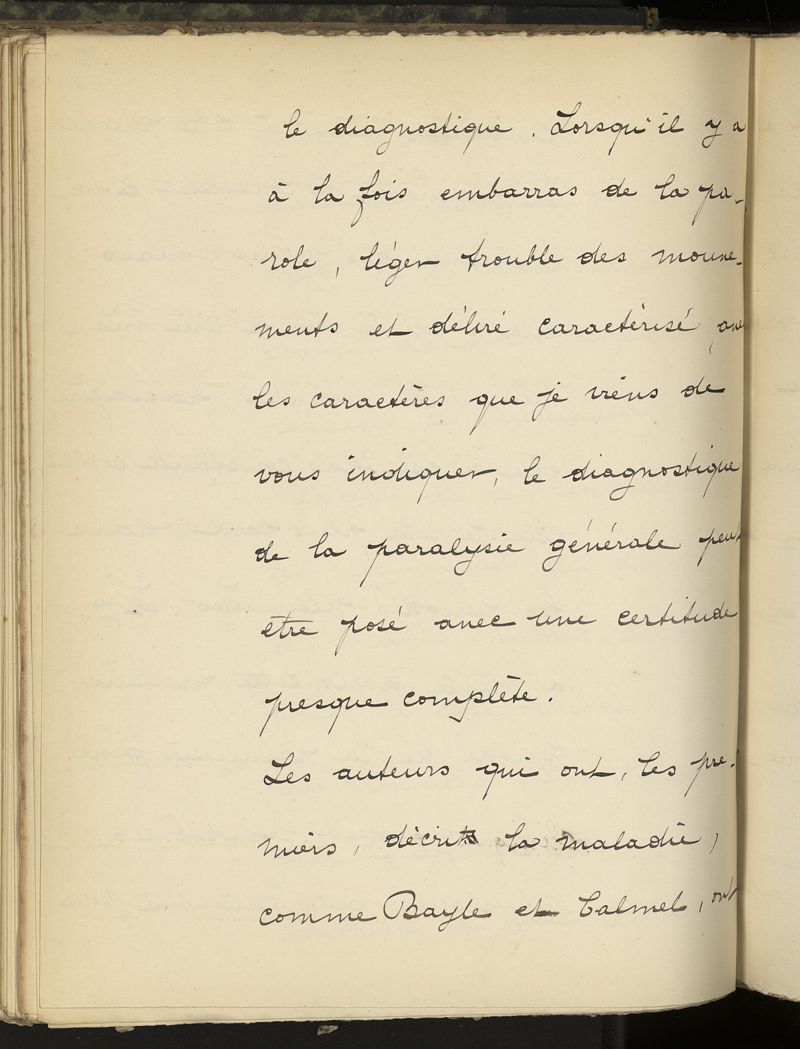 le diagnostique. Lorsqu'il y a
à la fois embarras de la pa-
role, léger trouble des mouve-
ments et déliré caractérisé, avec
les caractères que je viens de
vous indiquer, le diagnostique
de la paralysie générale peut
etre posé avec une certitude
presque complète.
Les auteurs qui ont, les pre-
miers, décrits la maladie,
comme Bayle et Calmel, ont